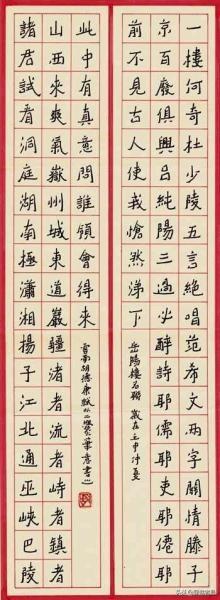 一樓何奇杜少陵五言絕唱范希文两字關情滕子
京百廢俱興呂純陽三過必醉詩耶儒耶吏耶僊耶
前不見古人使我愴然涕下
岳陽樓名聯 歲在壬申仲夏
諸君試看洞庭湖南極瀟湘揚子江北通巫峽巴陵
山西來爽氣嶽州城東道巖疆瀦者流者峙者鎮者
此中有真意問誰領會得來
雲南胡德康